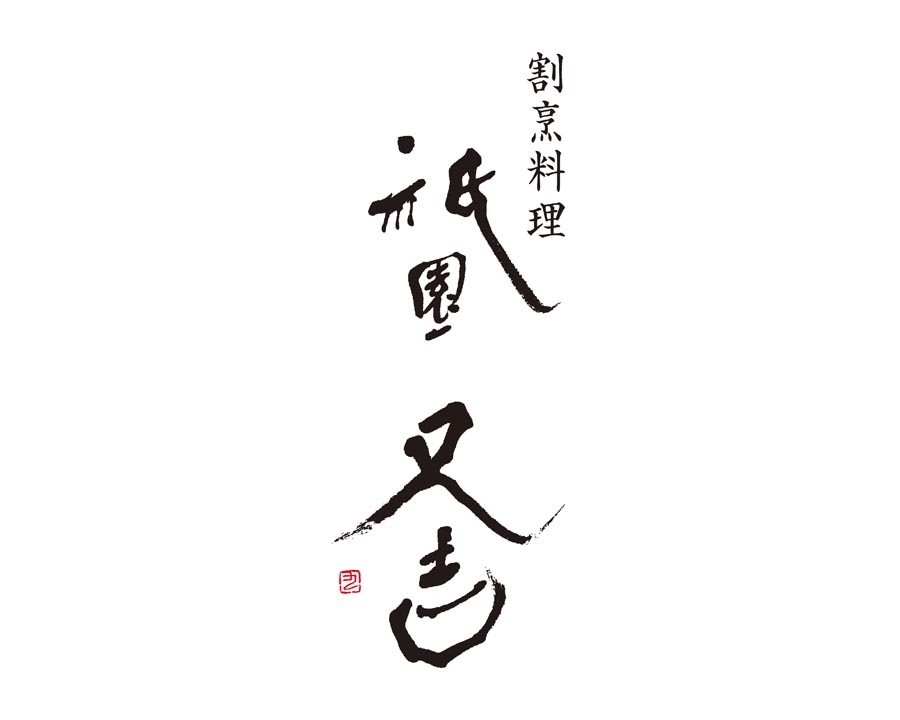 割烹料理
祇園
又吉